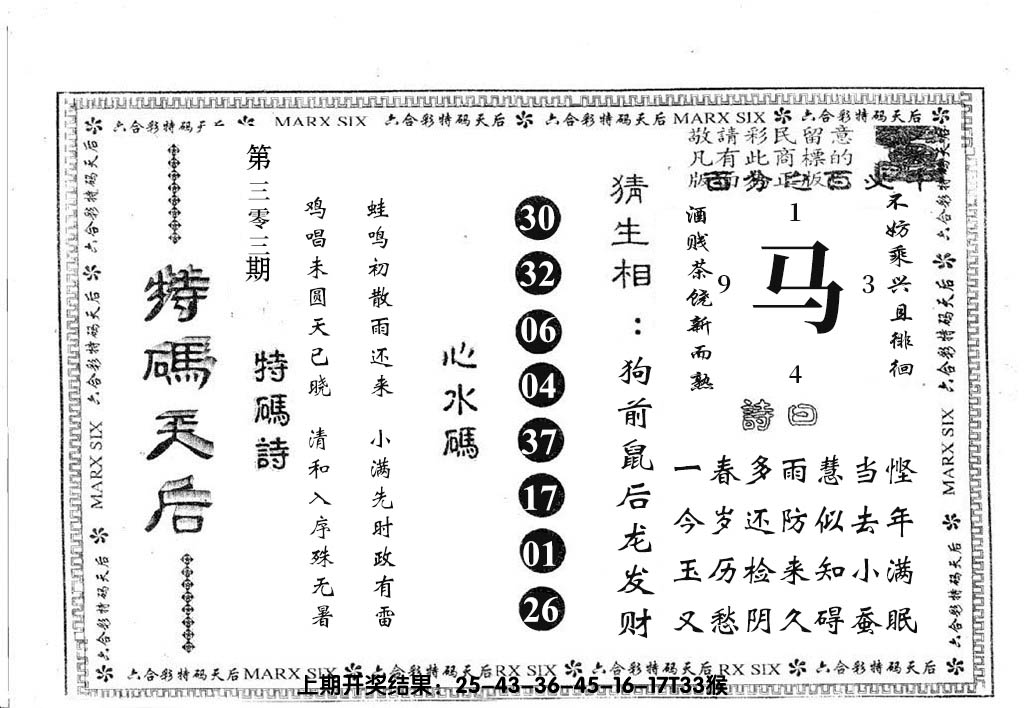 六合彩特码天后 MARX SIX 六合彩特码天后 六合彩特码天后 MARX SIX 六合彩特码天后
特碼天后
第三零三期
特碼詩
鸡唱未圆天已晓 清和入序殊无暑
蛙鸣初散雨还来 小满先时政有雷
心水碼
30
32
06
04
37
17
01
26
猜生相:狗前鼠后龙发财
敬請彩民留意
凡有此商標的
酒贱茶饶新而熟
1
9 马 3
4
不妨乘兴且徘徊
詩曰
一春多雨慧当悭
今岁还防似去年
玉历检来知小满
又愁阴久碍蚕眠
六合彩特码天后 MARX SIX 六合彩特码天后
六合彩特码天后 MARX SIX 六合彩特码天后
六合彩特码天后 MARX SIX 六合彩特码天后 RX SIX 六合彩特码天后 RX SIX 六合彩特码天后
上期开奖结果：25-43-36-45-16-17T33猴